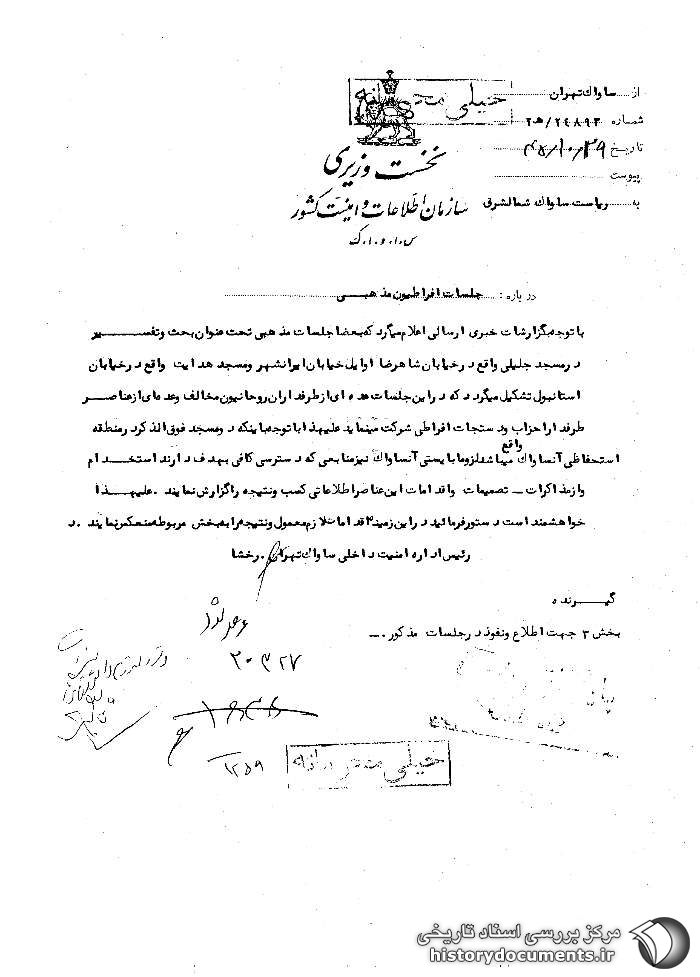 از ساواک تهران
خیلی محرمانه
شماره ۲۴۸۹۳/ ۲ه
تاریخ ۴۵/۱۰/۲۹
پیوست
نخست وزیری
به ریاست ساواک شمالشرق
سازمان اطلاعات و امنیت کشور
س.ا.و.ا.ک
درباره : جلسات افراطیون مذهبی
با توجه بگزارشات خبری ارسالی اعلام میگردد که بعضا جلسات مذهبی تحت عنوان بحث و تفسیر
در مسجد جلیلی واقع در خیابان شاهرضا اوایل خیابان ایرانشهر و مسجد هدایت واقع در خیابان
استانبول تشکیل میگردد که در این جلسات عده ای از طرفداران روحانیون مخالف و عده ای از عناصر
طرفدار احزاب و دستجات افراطی شرکت مینماید علیهذا با توجه باینکه دو مسجد فوق الذکر در منطقه
استحفاظی آنساواک واقع میباشد لزوما بایستی آنساواک نیز منابعی که دسترسی کافی بهدف دارند استخدام
و از مذاکرات - تصمیمات و اقدامات این عناصر اطلاعاتی کسب و نتیجه را گزارش نمایند . علیهذا
خواهشمند است دستور فرمائید در این زمینه اقدامات لازم معمول و نتیجه را به بخش مربوطه منعکس نمایند . د
رئیس اداره امنیت داخلی ساواک تهران . رخشا
گیرنده
بخش ۳ جهت اطلاع و نفوذ در جلسات مذکور .
۲۰۳۲۷
۱۲۵۹
خیلی محرمانه
مرکز بررسی اسناد تاریخی
historydocuments.ir